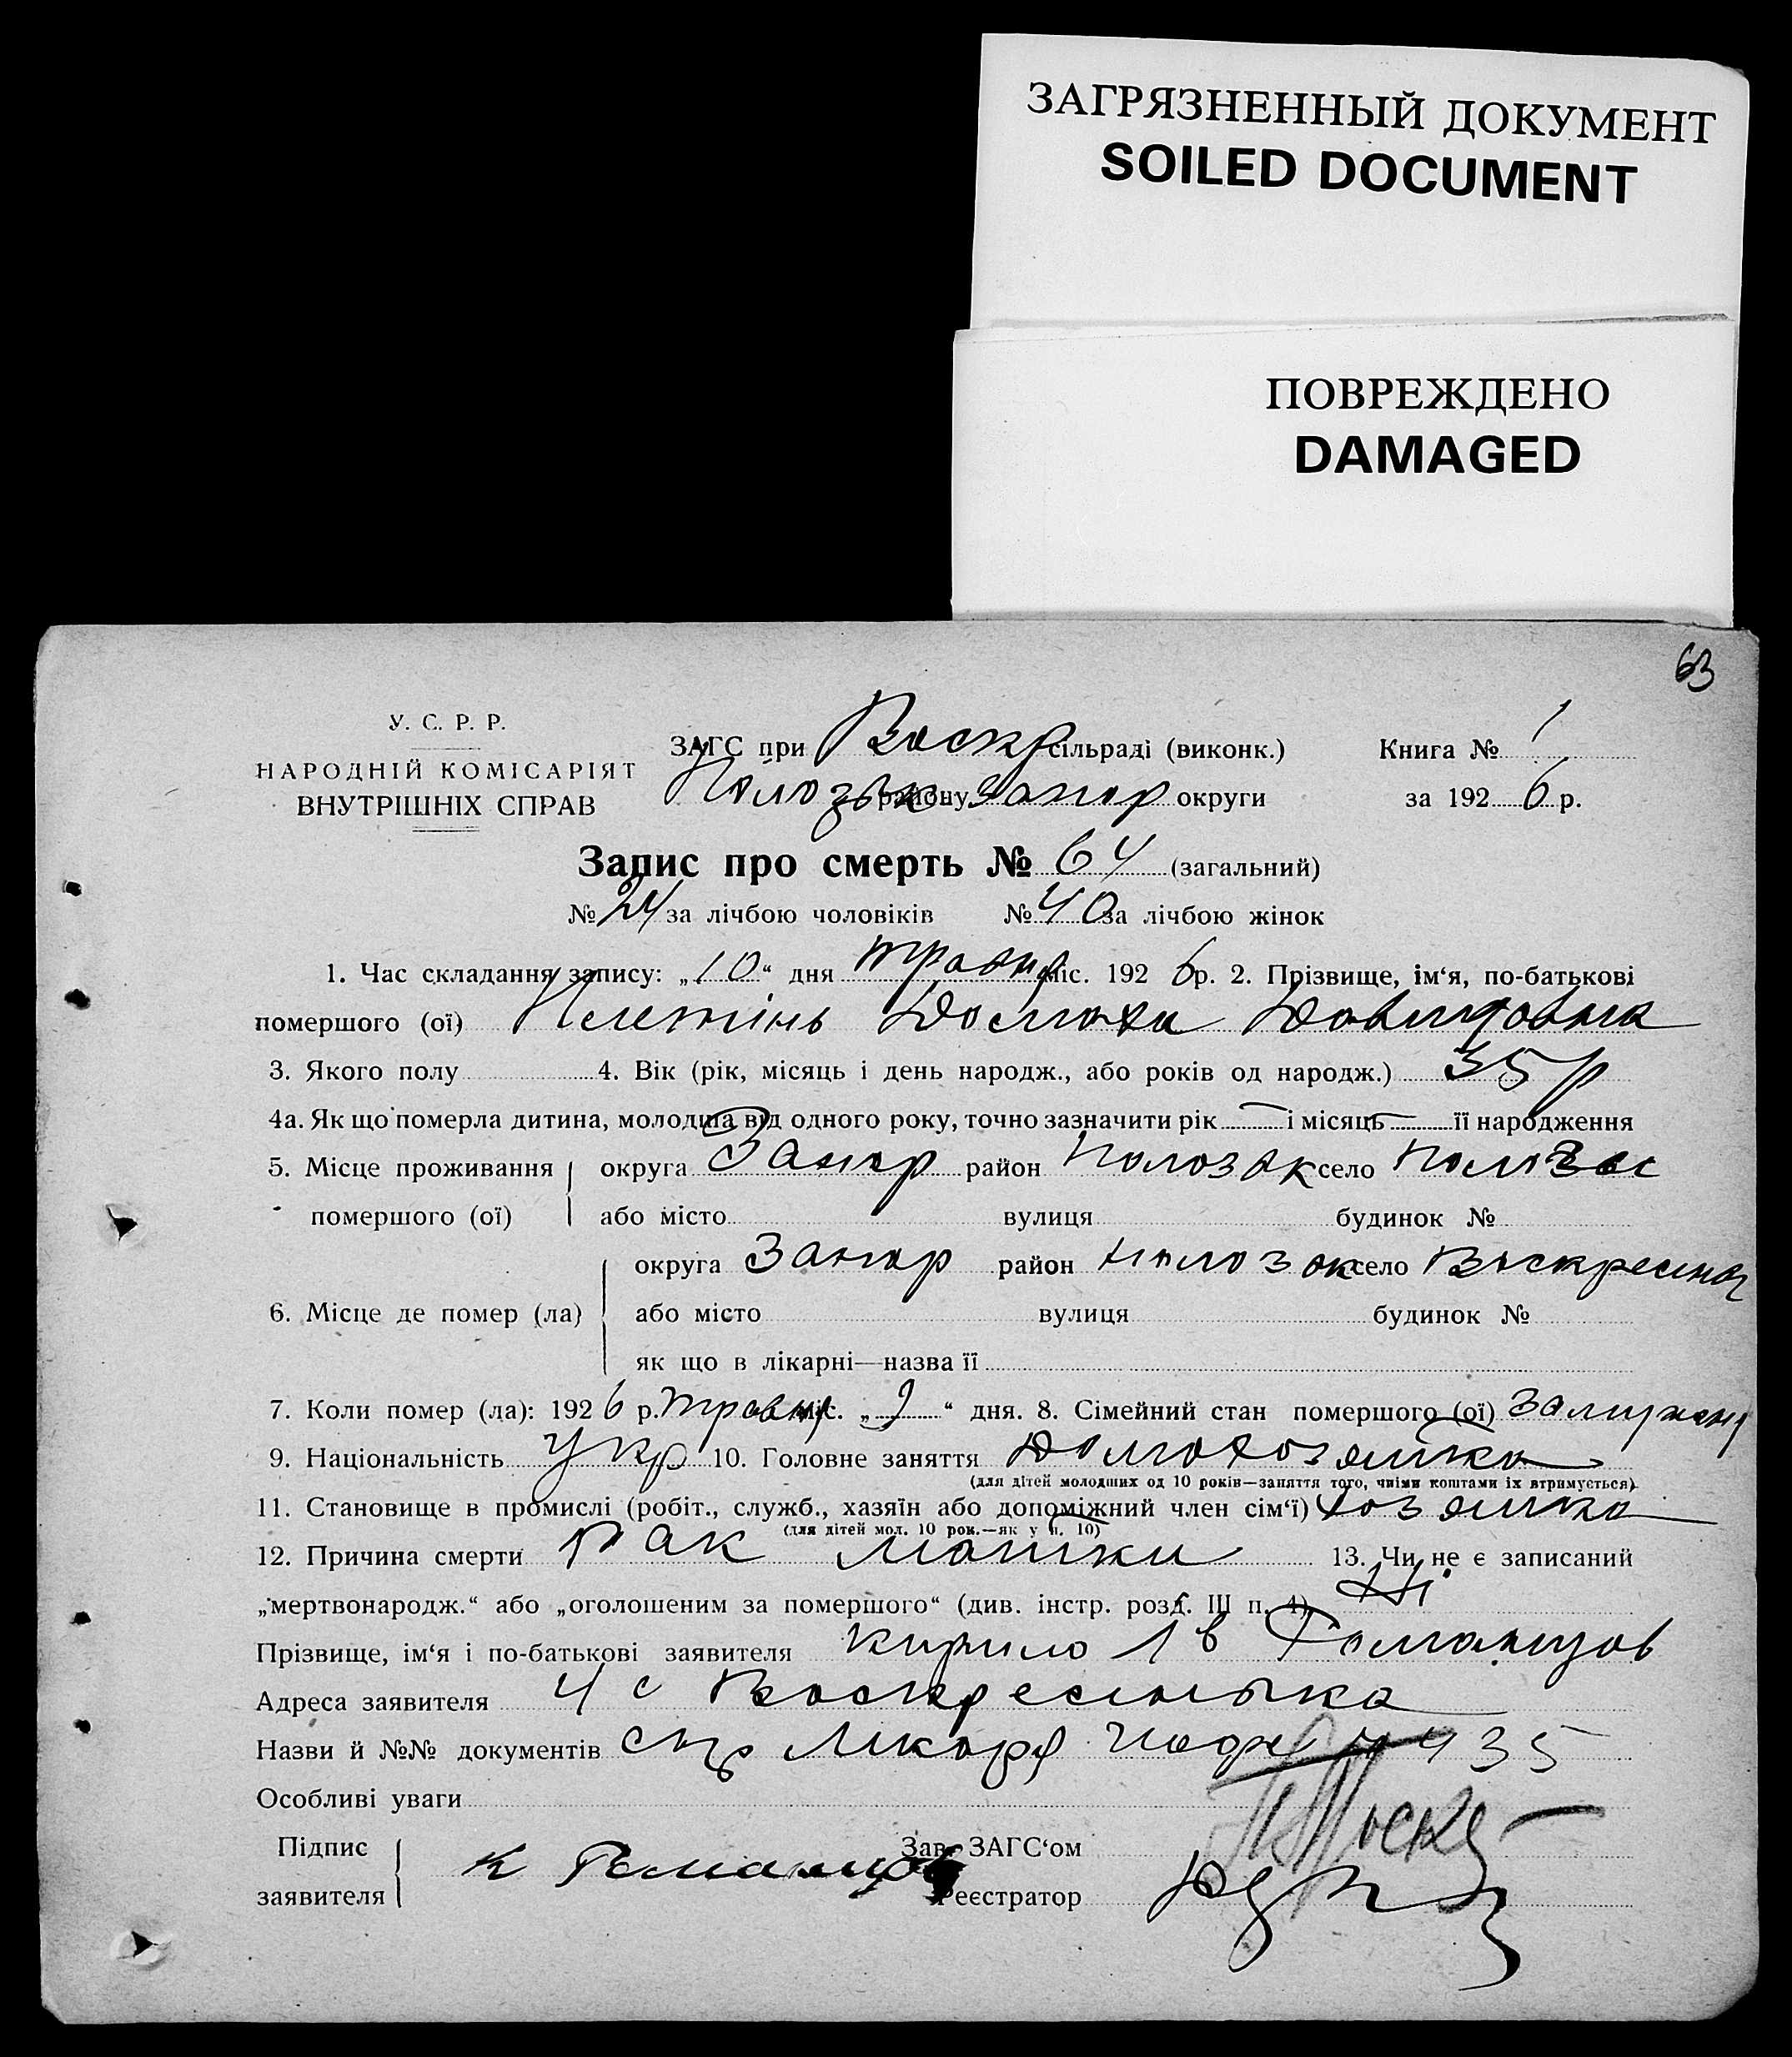 ЗАГРЯЗНЕННЫЙ ДОКУМЕНТ
SOILED DOCUMENT
ПОВРЕЖДЕНО
DAMAGED
63
У. С. Р. Р.
НАРОДНІЙ КОМІСАРІЯТ
ВНУТРІШНІХ СПРАВ
ЗАГС при Воскр сільраді (виконк.) Книга № 1
району Запор округи за 192 6 р.
Запис про смерть № 64 (загальний)
№ 24 за лічбою чоловіків № 40 за лічбою жінок
1. Час складання запису: „ 10 “ дня травня міс. 192 6 р. 2. Прізвище, ім‘я, по-батькові
помершого (ої) Домаха Давидовна
3. Якого полу 4. Вік (рік, місяць і день народж., або років од народж.) 35 р
4а. Як що померла дитина, молодша від одного року, точно зазначити рік — і місяць — її народження
5. Місце проживання помершого (ої) округа Запор район село
або місто вулиця будинок №
6. Місце де помер (ла) округа Запор район село
або місто вулиця будинок №
як що в лікарні—назва її
7. Коли помер (ла): 192 6 р. травня міс. „ 9 “ дня. 8. Сімейний стан помершого (ої)
9. Національність Укр 10. Головне заняття домохозяйка
(для дітей молодших од 10 років—заняття того, чиїми коштами їх втримується)
11. Становище в промислі (робіт., служб., хазяїн або допоміжний член сім‘ї) хозяйка
(для дітей мол. 10 рок.—як у п. 10)
12. Причина смерти Рак матки 13. Чи не є записаний
„мертвонародж.“ або „оголошеним за помершого“ (див. інстр. розд. III п. 4) Ні
Прізвище, ім‘я і по-батькові заявителя Кирило
Адреса заявителя с Воскресенька
Назви й №№ документів 435
Особливі уваги
Підпис заявителя
Зав. ЗАГС‘ом
Реєстратор